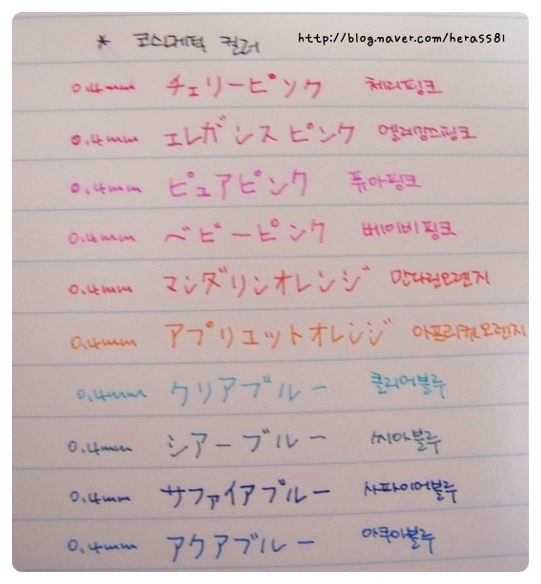 * 코스메틱 컬러 http://blog.naver.com/hera5581
0.4mm チェリーピンク 체리핑크
0.4mm エレガンスピンク 엘레강스핑크
0.4mm ピュアピンク 퓨아핑크
0.4mm ベビーピンク 베이비핑크
0.4mm マンダリンオレンジ 만다린오렌지
0.4mm アプリエットオレンジ 아프리컷오렌지
0.4mm クリアブルー 클리어블루
0.4mm シアーブルー 씨아블루
0.4mm サファイアブルー 사파이어블루
0.4mm アクアブルー 아쿠아블루